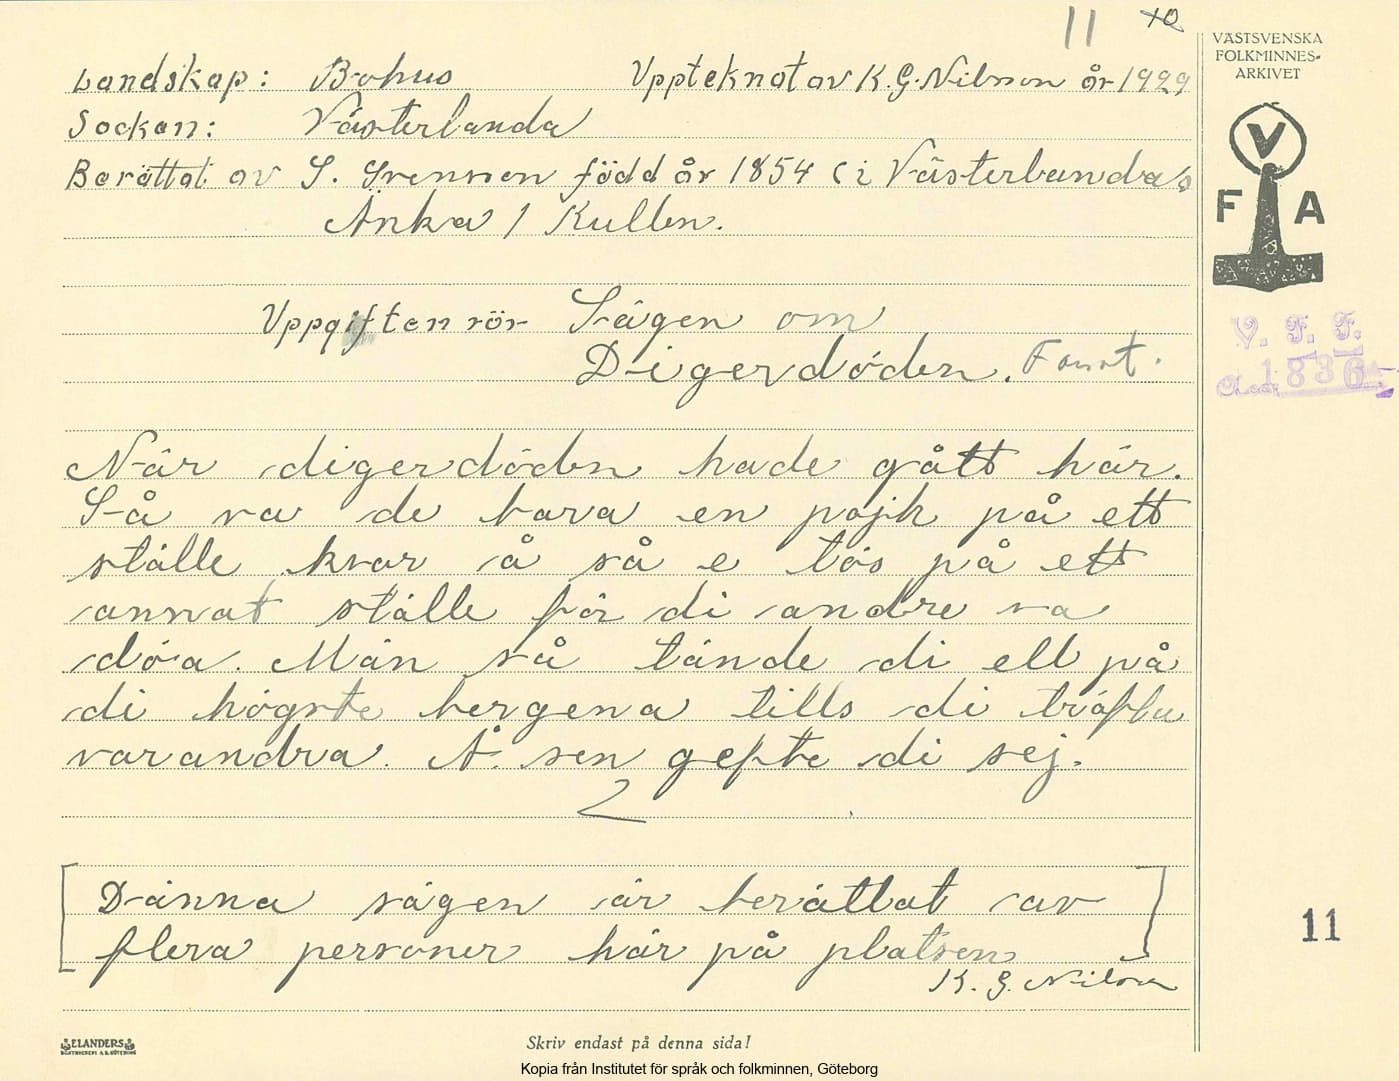 11 10
VÄSTSVENSKA
FOLKMINNES-
ARKIVET
V
F A
Landskap: Bohus Upptecknat av K. G. Nilsson år 1929
Socken: Västerlanda
Berättat av S. Svenson född år 1854 i Västerlanda
Änka / Kullen.
Uppgiften rör Sägen om
Digerdöden.
V. F. F.
1836
När digerdöden hade gått här.
Så va de bara en pojk på ett
ställe kvar å så e tös på ett
annat ställe för di andre va
döa. Män så tände di ell på
di högste bergena tills di träffa
varandra. Å sen gefte di sej.
2
[Dänna sägen är berättat av
flera personer här på platsen]
K. G. Nilson
11
ELANDERS
BOKTRYCKERI A.B. GÖTEBORG
Skriv endast på denna sida!
Kopia från Institutet för språk och folkminnen, Göteborg